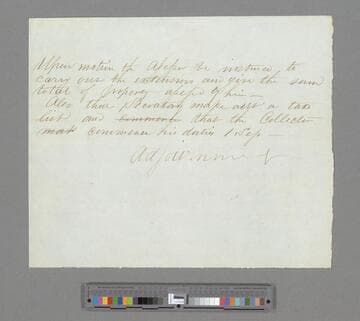 Upon motion th Assessor be instructed to
carry out the extensions and give the sum
total of property assessed by him —
Also that Secretary make out a tax
list and comme that the Collector
commence his duties 1 Sep —
Adjourned